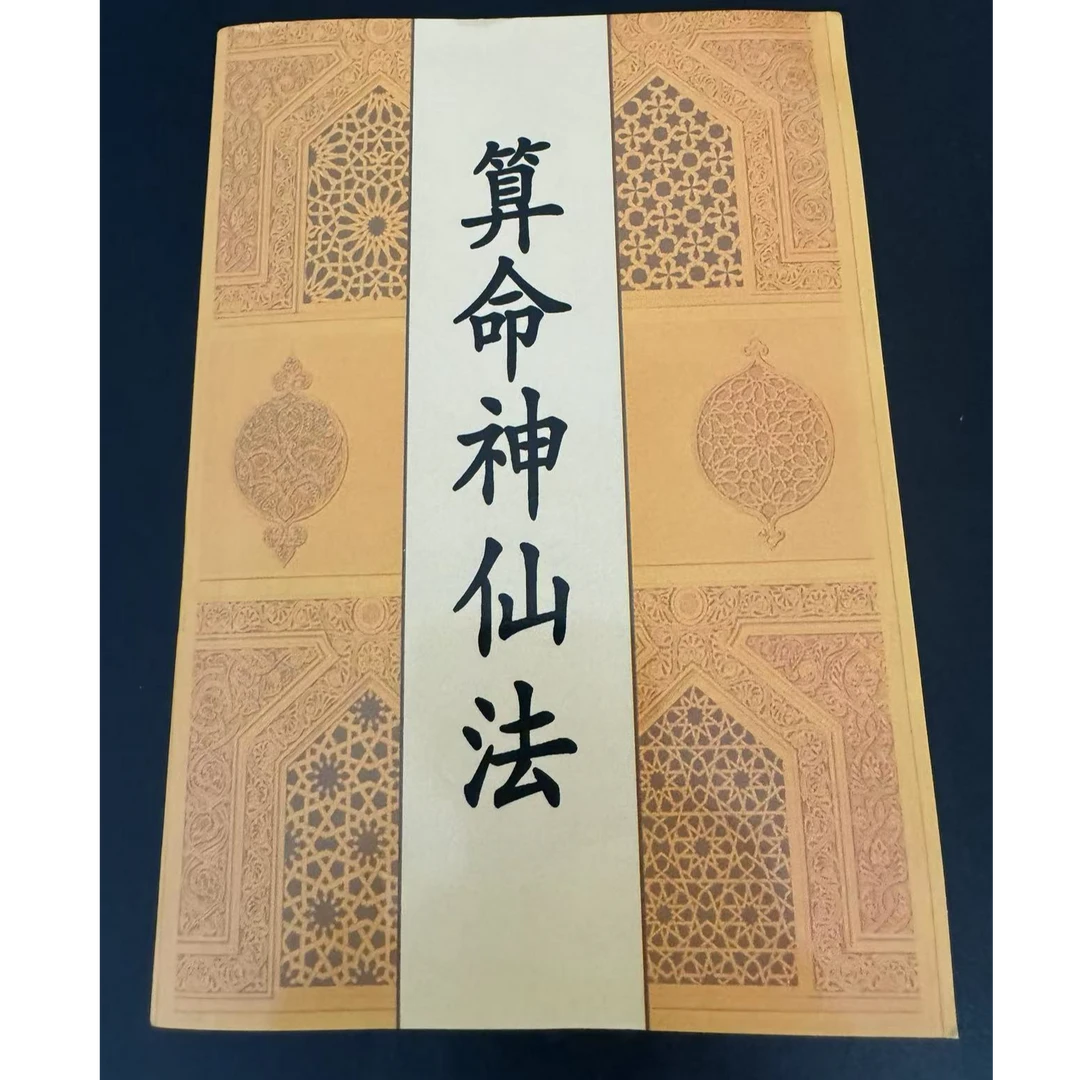 算命神仙法